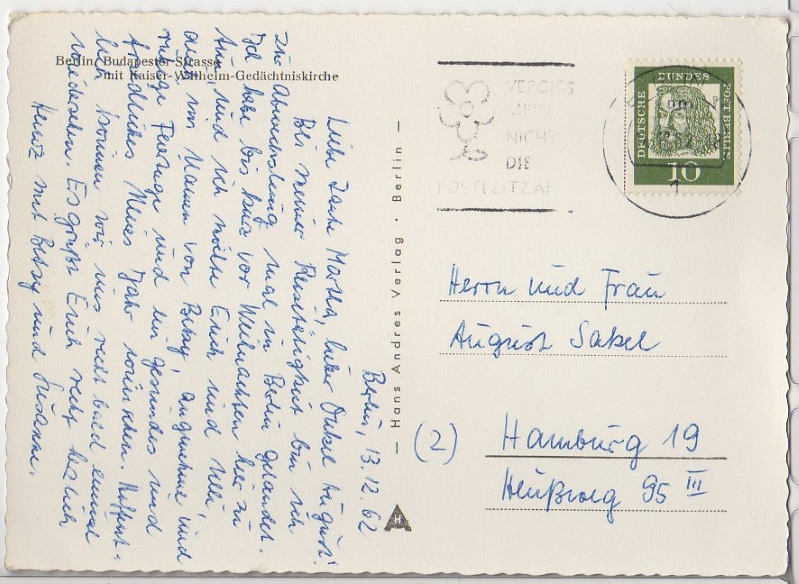 Berlin, Budapester Strasse
mit Kaiser-Wilhelm-Gedächtniskirche
Berlin, 13.12.62
Liebe Tante Martha, lieber Onkel August!
Bei meiner Reisetätigkeit bin ich
zur Abwechslung mal in Berlin gelandet.
Ich habe bis kurz vor Weihnachten hier zu
tun und ich möchte Euch und
auch im Namen von Betsy, angenehme und
ruhige Festtage und ein gesundes und
friedliches Neues Jahr wünschen. Hoffent-
lich können wir uns recht bald einmal
wiedersehen. Es grüßt Euch recht herzlich
Heinz mit Betsy und Susanne.
— Hans Andres Verlag • Berlin —
H
VERGISS
MEIN
NICHT
DIE
POSTLEITZAHL
DEUTSCHE BUNDESPOST BERLIN
10
Herrn und Frau
August Sabel
(2) Hamburg 19
Heußweg 95 III